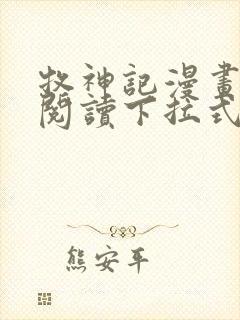 牧神記漫畫
閱讀下拉式
熊安平